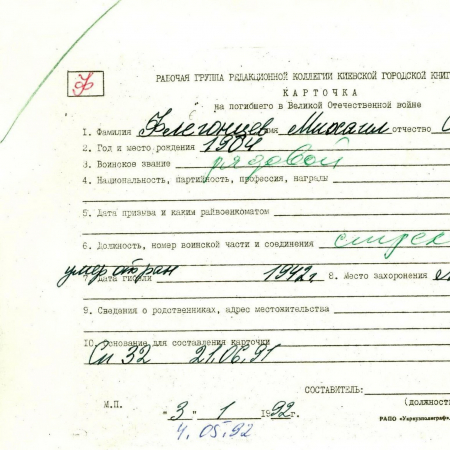 Ф
РАБОЧАЯ ГРУППА РЕДАКЦИОННОЙ КОЛЛЕГИИ КИЕВСКОЙ ГОРОДСКОЙ КНИГ
КАРТОЧКА
на погибшего в Великой Отечественной войне
1. Фамилия Флегонцев имя Михаил отчество С
2. Год и место рождения 1904
3. Воинское звание рядовой
4. Национальность, партийность, профессия, награды
5. Дата призыва и каким райвоенкоматом
6. Должность, номер воинской части и соединения стрел
умер от ран
7. Дата гибели 1942г 8. Место захоронения
9. Сведения о родственниках, адрес местожительства
10. Основание для составления карточки
Сп 32 21.06.91
СОСТАВИТЕЛЬ:
(должнос
М.П. "3" 1 1992г.
4.05.92
РАПО «Укрвузполиграф».